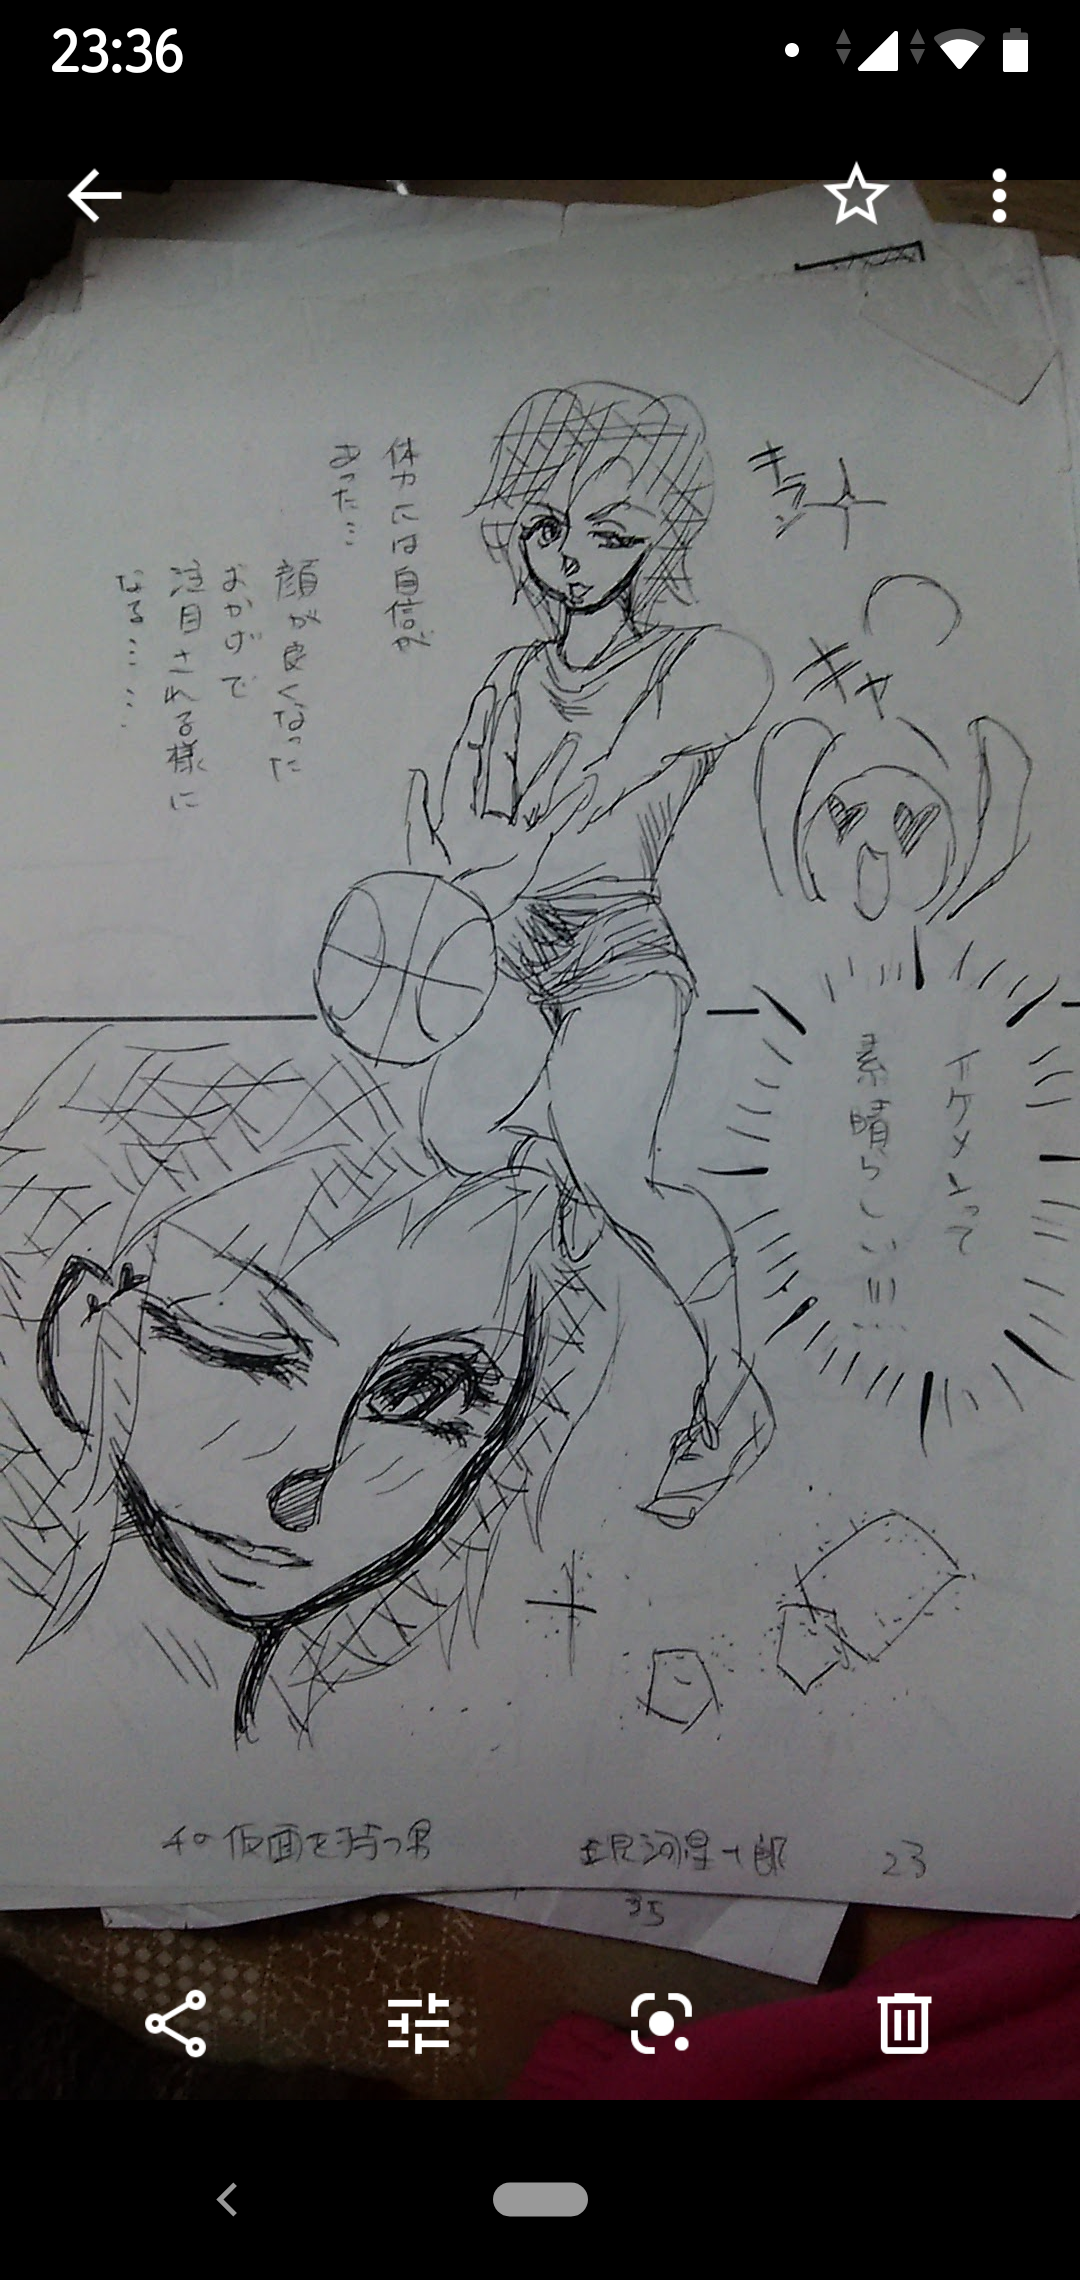 23:36
キラッ
体力には自信が
あった…
顔が良くなった
おかげで
注目される様に
なる……
キャー
イケメンって
素晴らしい!!!…
40 仮面を持つ男
銀河星十郎
23
35